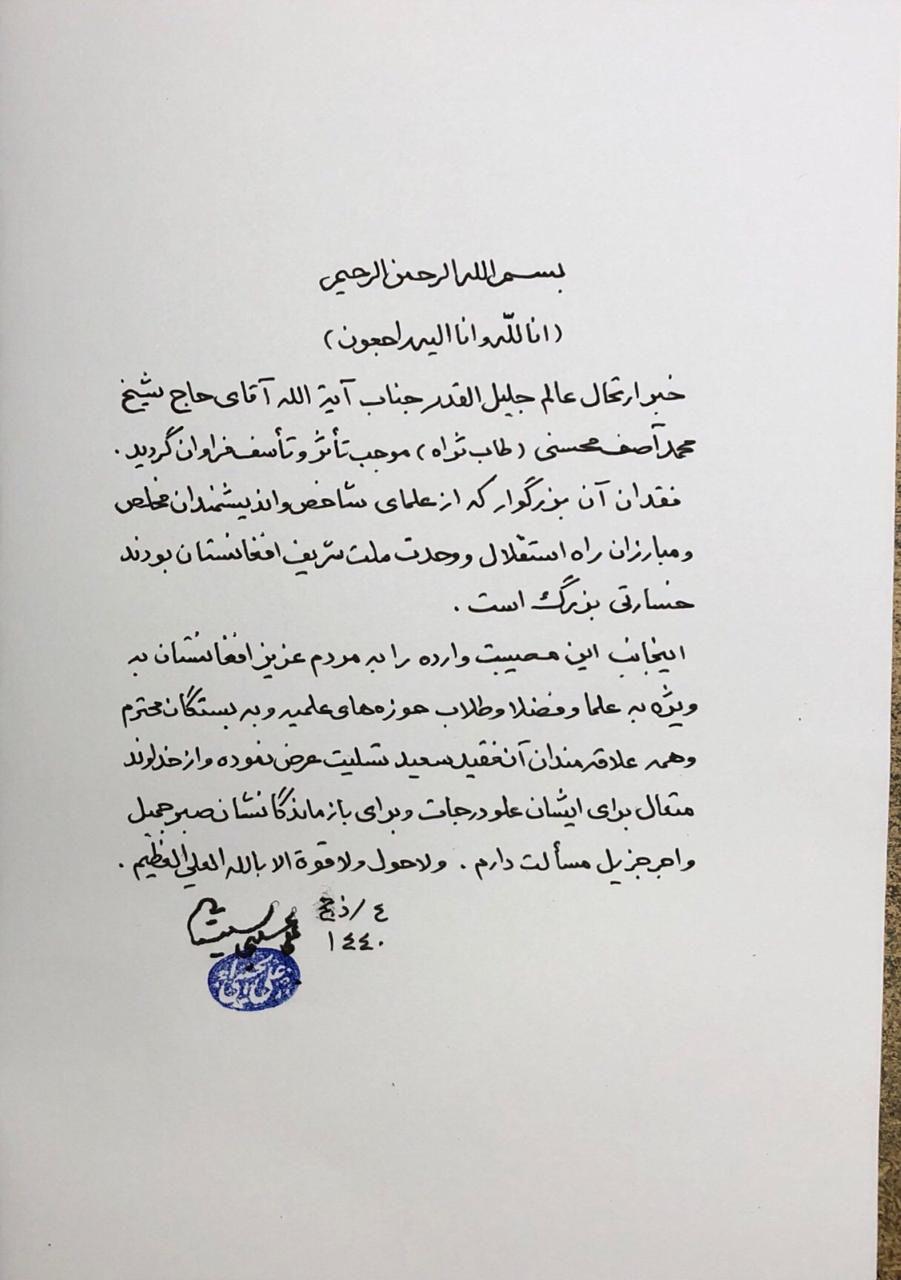 بسم الله الرحمن الرحیم
(انا لله و انا الیه راجعون)
خبر ارتحال عالم جلیل القدر جناب آیة الله آقای حاج شیخ
محمد آصف محسنی (طاب ثراه) موجب تأثر و تأسف فراوان گردید.
فقدان آن بزرگوار که از علمای شاخص و اندیشمندان مخلص
و مبارزان راه استقلال و وحدت ملت شریف افغانستان بودند
خسارتی بزرگ است.
اینجانب این مصیبت وارده را به مردم عزیز افغانستان به
ویژه به علما و فضلا و طلاب حوزه‌های علمیه و به بستگان محترم
و همه علاقه‌مندان آن فقید سعید تسلیت عرض نموده و از خداوند
متعال برای ایشان علو درجات و برای بازماندگانشان صبر جمیل
و اجر جزیل مسألت دارم. ولا حول ولا قوة الا بالله العلي العظیم.
٤/ذح
١٤٤٠
علی الحسینی السیستانی